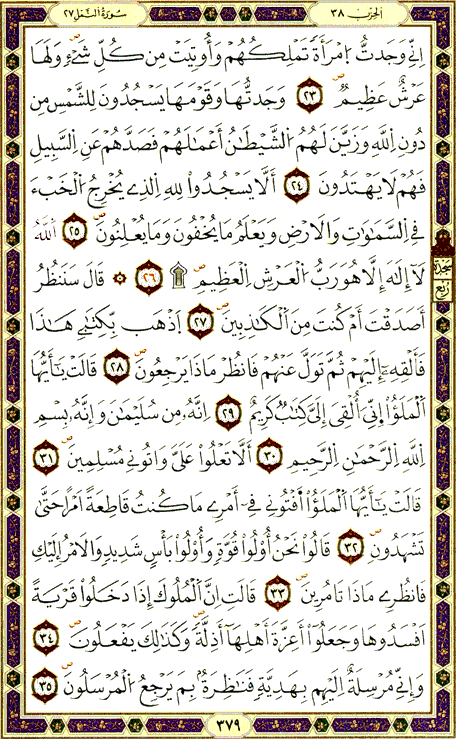 الحزب ٣٨
سُورَةُ النَّمل ٢٧
اِنِّے وَجَدتُّ اُ۪مْرَأَةٗ تَمْلِكُهُمْ وَأُوتِيَتْ مِن كُلِّ شَےْءٖ وَلَهَا
عَرْشٌ عَظِيمٌ ٢٣ وَجَدتُّهَا وَقَوْمَهَا يَسْجُدُونَ لِلشَّمْسِ مِن
دُونِ اِ۬للَّهِ وَزَيَّنَ لَهُمُ اُ۬لشَّيْطَٰنُ أَعْمَٰلَهُمْ فَصَدَّهُمْ عَنِ اِ۬لسَّبِيلِ
فَهُمْ لَا يَهْتَدُونَ ٢٤ أَلَّا يَسْجُدُواْ لِلهِ اِ۬لذِے يُخْرِجُ اُ۬لْخَبْءَ
فِے اِ۬لسَّمَٰوَٰتِ وَالَارْضِ وَيَعْلَمُ مَا يُخْفُونَ وَمَا يُعْلِنُونَ ٢٥ اَ۬للَّهُ
لَآ إِلَٰهَ إِلَّا هُوَ رَبُّ اُ۬لْعَرْشِ اِ۬لْعَظِيمِ ۩ ٢٦ ۞ قَالَ سَنَنظُرُ
أَصَدَقْتَ أَمْ كُنتَ مِنَ اَ۬لْكَٰذِبِينَ ٢٧ اَ۪ذْهَب بِّكِتَٰبِے هَٰذَا
فَأَلْقِهِۦٓ إِلَيْهِمْ ثُمَّ تَوَلَّ عَنْهُمْ فَانظُرْ مَاذَا يَرْجِعُونَ ٢٨ قَالَتْ يَٰٓأَيُّهَا
اَ۬لْمَلَؤُاْ اِنِّيَ أُلْقِيَ إِلَيَّ كِتَٰبٌ كَرِيمٌ ٢٩ اِنَّهُۥ مِن سُلَيْمَٰنَ وَإِنَّهُۥ بِسْمِ
اِ۬للَّهِ اِ۬لرَّحْمَٰنِ اِ۬لرَّحِيمِ ٣٠ أَلَّا تَعْلُواْ عَلَيَّ وَاتُونِے مُسْلِمِينَ ٣١
قَالَتْ يَٰٓأَيُّهَا اَ۬لْمَلَؤُاْ اَفْتُونِے فِےٓ أَمْرِے مَا كُنتُ قَاطِعَةً اَمْراً حَتَّىٰ
تَشْهَدُونِ ٣٢ قَالُواْ نَحْنُ أُوْلُواْ قُوَّةٖ وَأُوْلُواْ بَأْسٖ شَدِيدٖ وَالَامْرُ إِلَيْكِ
فَانظُرِے مَاذَا تَامُرِينَ ٣٣ قَالَتِ اِنَّ اَ۬لْمُلُوكَ إِذَا دَخَلُواْ قَرْيَةً
اَفْسَدُوهَا وَجَعَلُوٓاْ أَعِزَّةَ أَهْلِهَآ أَذِلَّةٗ وَكَذَٰلِكَ يَفْعَلُونَ ٣٤
وَإِنِّے مُرْسِلَةٌ اِلَيْهِم بِهَدِيَّةٖ فَنَاظِرَةُۢ بِمَ يَرْجِعُ اُ۬لْمُرْسَلُونَ ٣٥
سجدة
ربع
٣٧٩